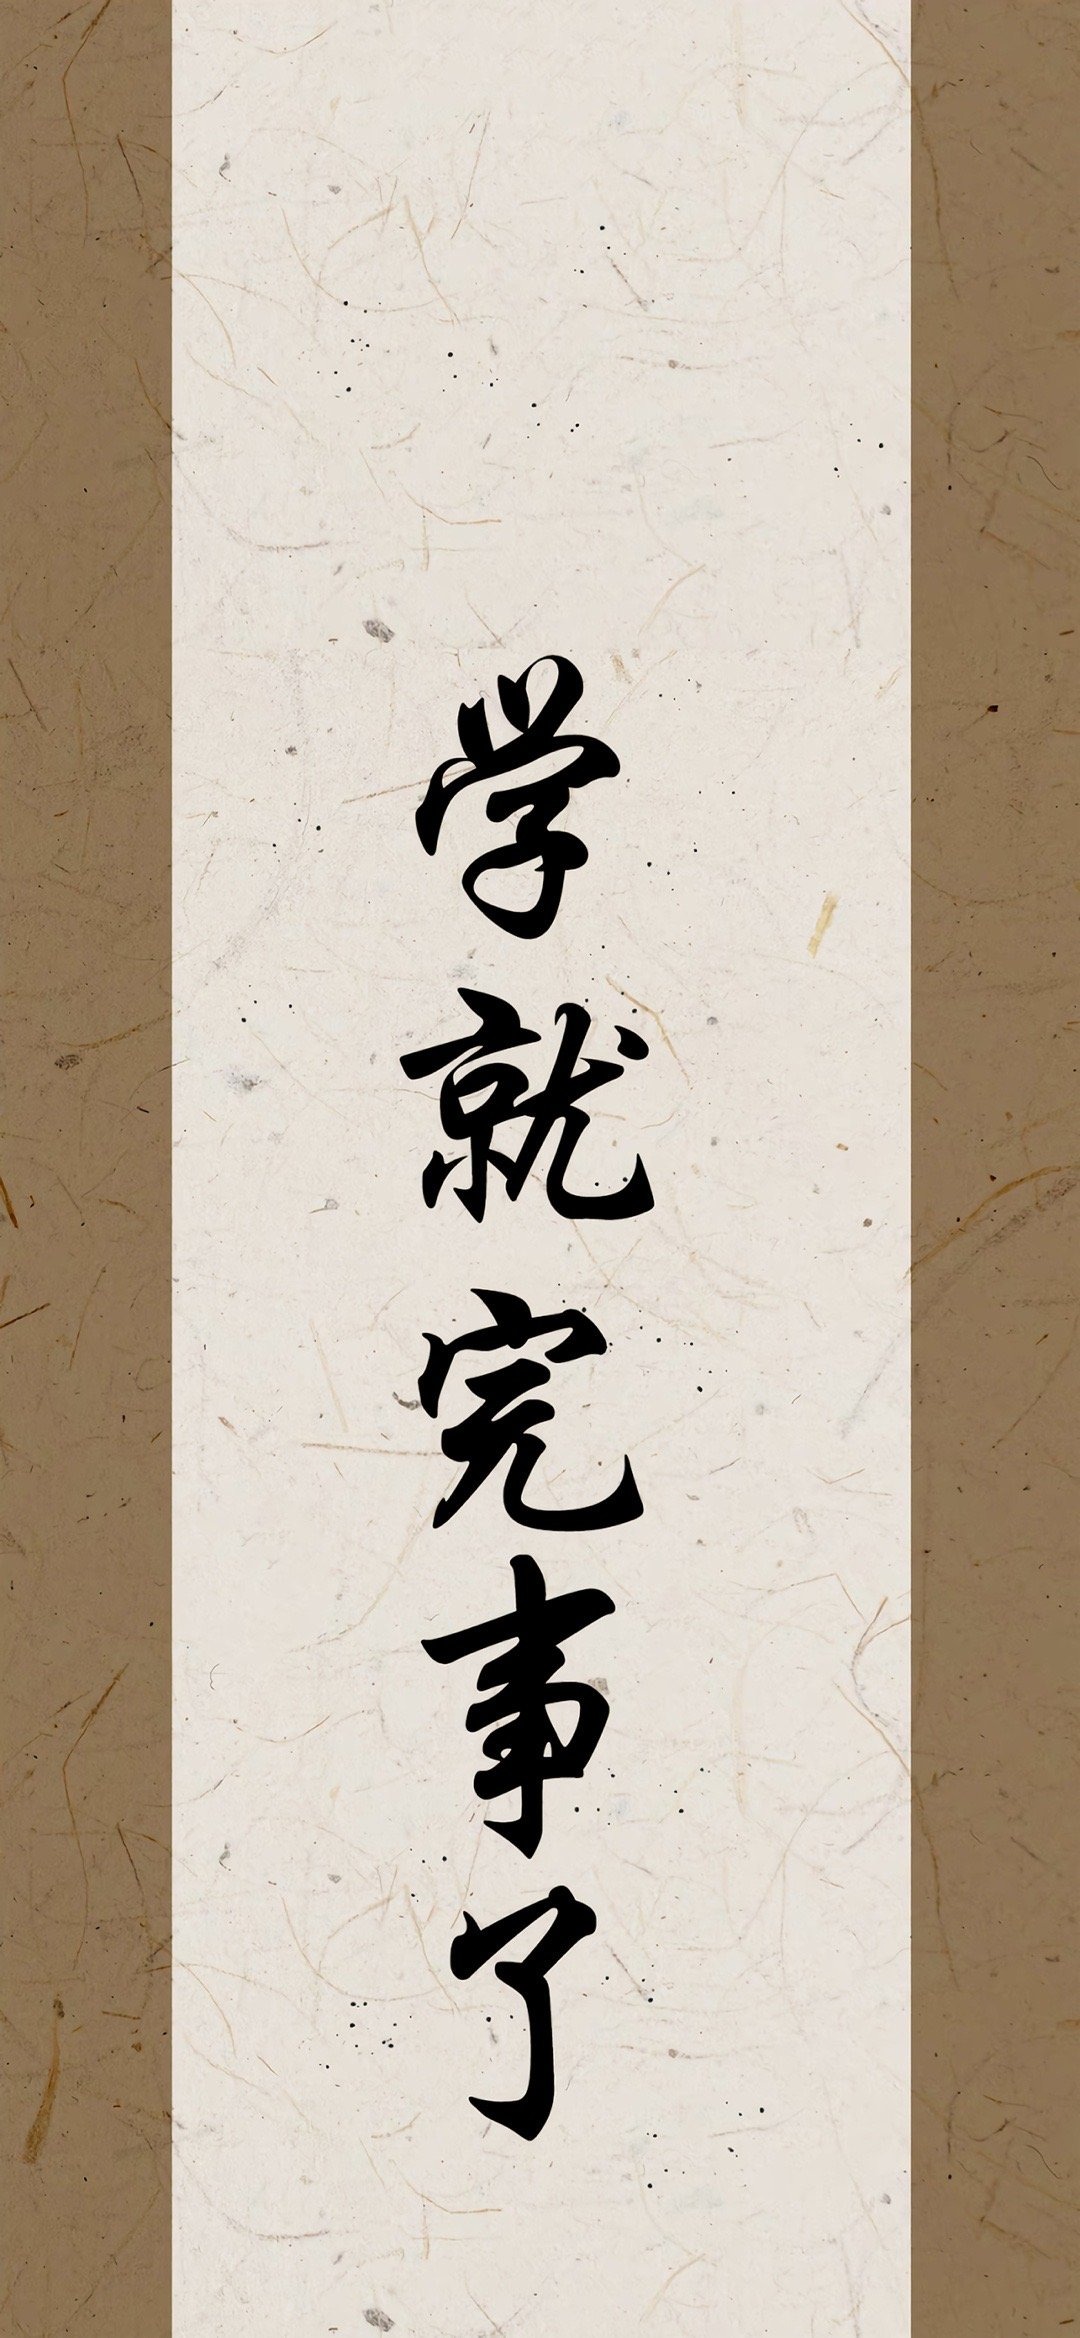 学就完事了